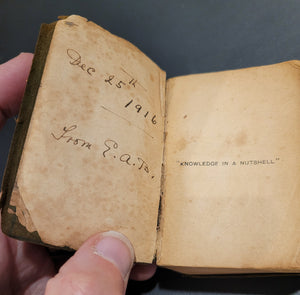 Dec 25th
1916
From E. A. B.
"KNOWLEDGE IN A NUTSHELL"